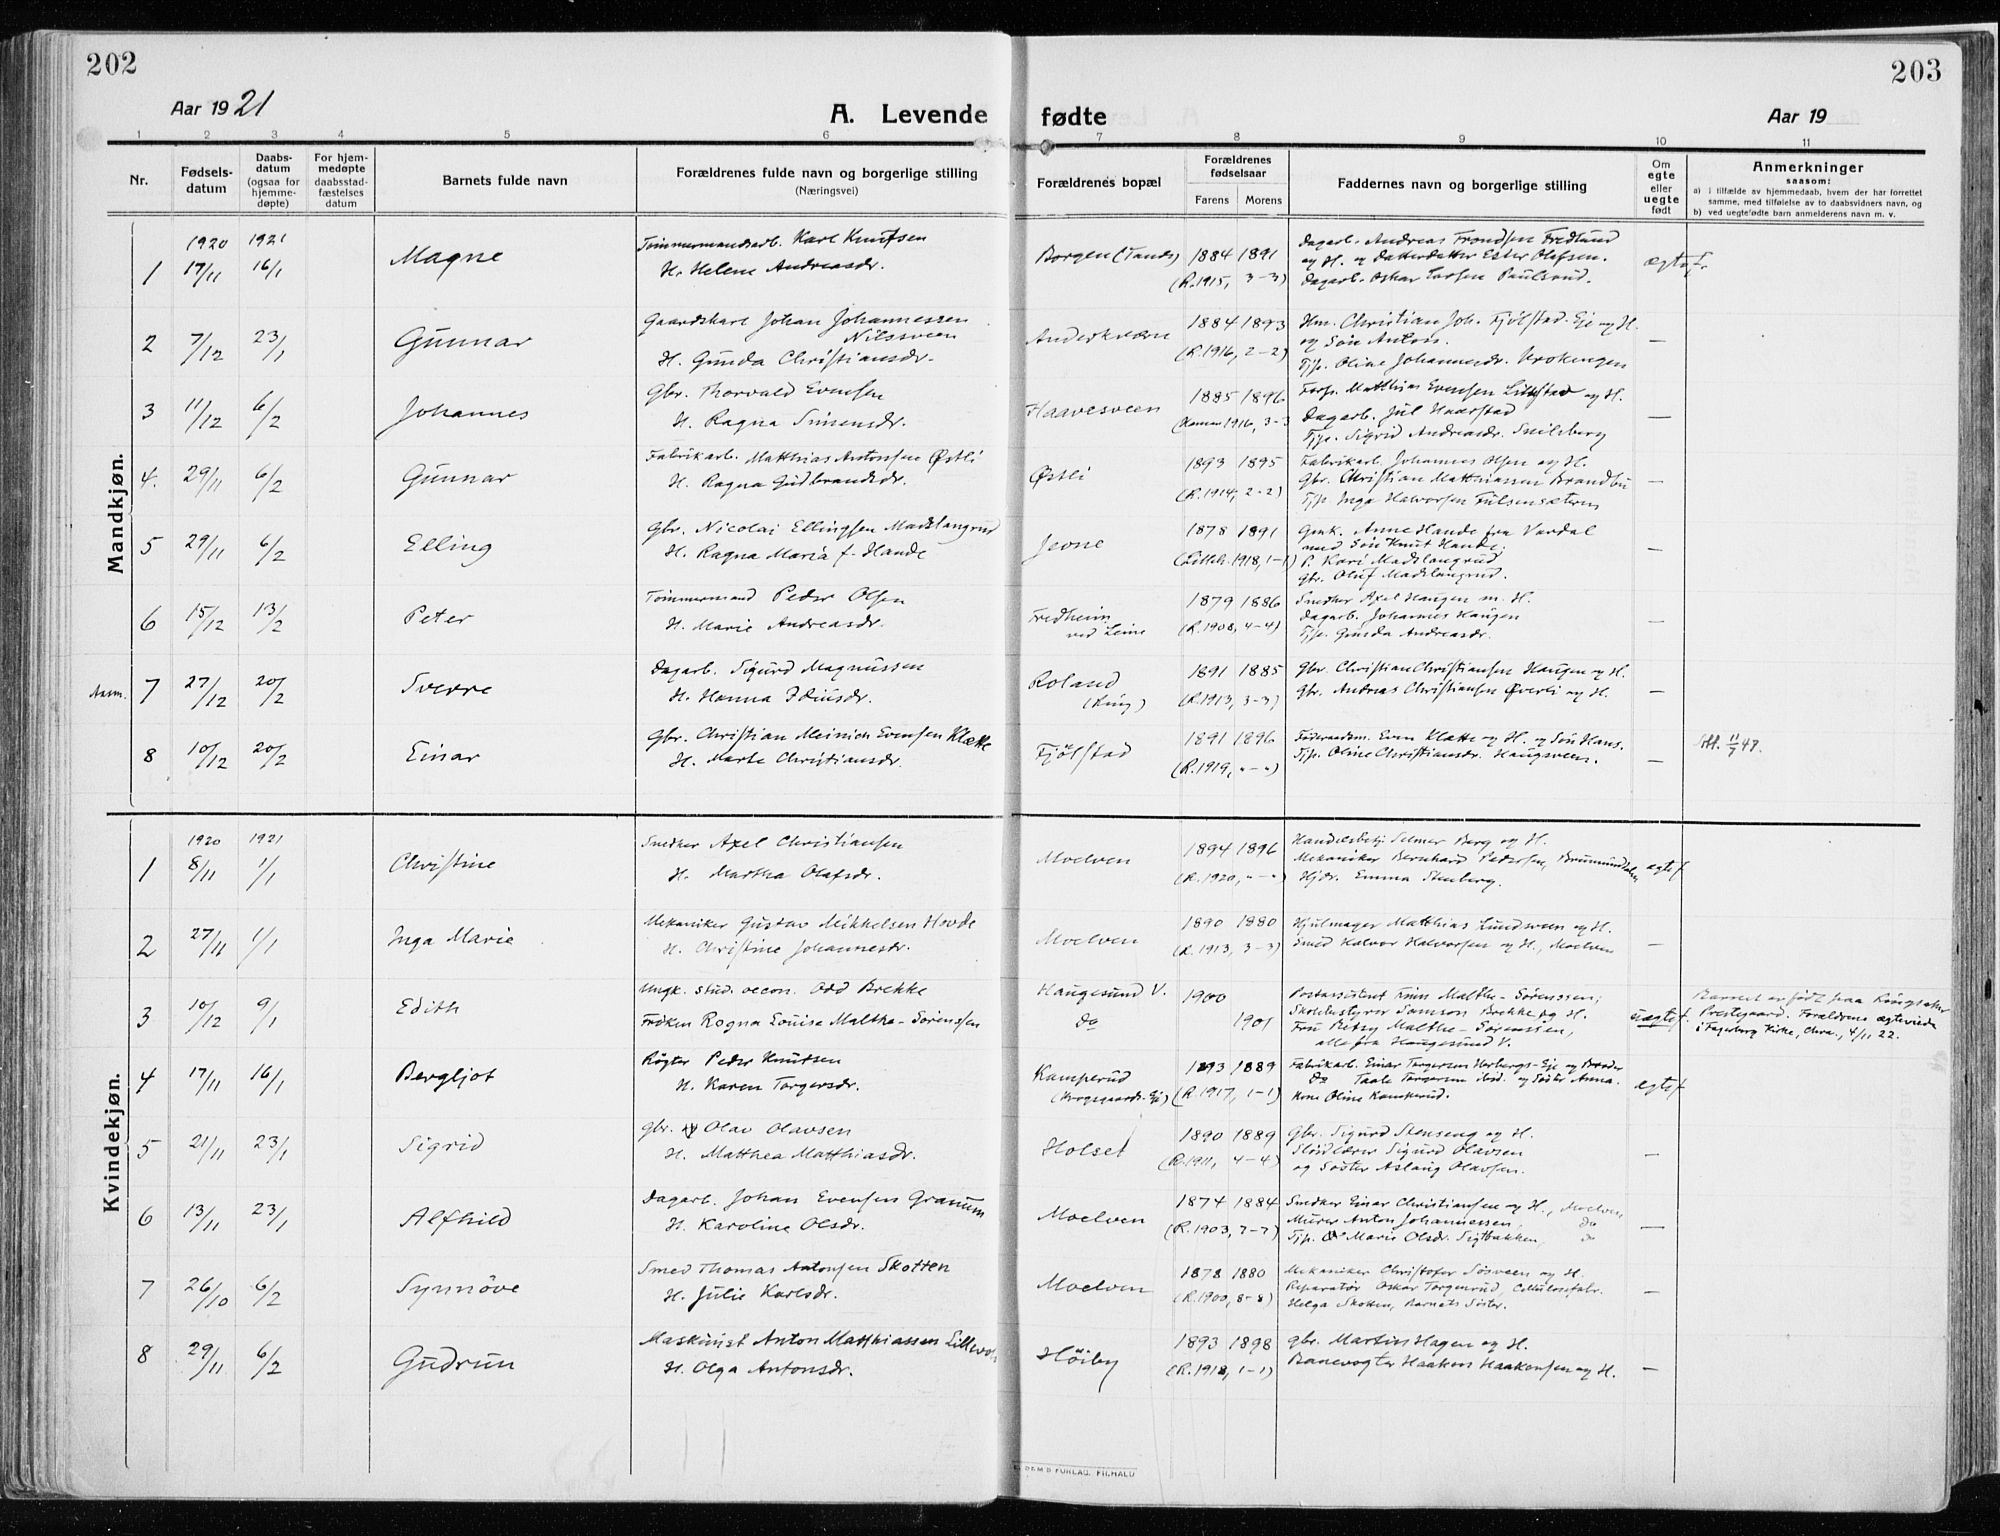 202
203
Aar 1921
A. Levende fødte
Aar 19
1 2 3 4 5 6 7 8 9 10 11
Nr.
Fødsels-
datum
Daabs-
datum
(ogsaa for
hjemme-
døpte)
For hjem-
medøpte
daabsstad-
fæstelses
datum
Barnets fulde navn
Forældrenes fulde navn og borgerlige stilling
(Næringsvei)
Forældrenes bopæl
Forældrenes
fødselsaar
Farens Morens
Faddernes navn og borgerlige stilling
Om
egte
eller
uegte
født
Anmerkninger
saasom:
a) i tilfælde av hjemmedaab, hvem der har forrettet
samme, med tilføielse av to daabsvidners navn, og
b) ved uegtefødte barn anmelderens navn m. v.
Mandkjøn.
1920 1921
1 17/11 16/1 Magne
Tømmermandsarb. Karl Knutsen
H. Helene Andreasdr.
Borgen (Tande)
1884 1891
(R. 1915, 3-3)
Dagarb. Andreas Frondsen Fredlund
og H. og Datterdatter Ester Olafsen.
Dagarb. Oskar Larsen Paulsrud.
ægtef.
2 7/12 23/1 Gunnar
Gaardskarl Johan Johannessen
Nilssveen
H. Gunda Christiansdr.
Anderkværn
1884 1893
(R. 1916, 2-2)
Hm. Christian Joh. Fjölstad-Eje og H.
og Søn Antois.
Tjp. Oline Johannesdr.
—
3 11/12 6/2 Johannes
Gbr. Thorvald Evensen
H. Ragna Simensdr.
Haavesveen
1885 1896
1916, 3-3
Forp. Matthias Evensen Linstad og H.
Dagarb. Jul Haarstad
Tjp. Sigrid Andreasdr. Snilsberg
—
4. 29/11 6/2 Gunnar
Fabrikarb. Matthias Antonsen Østli
H. Ragna Gudbrandsdr.
Østli
1893 1895
(R. 1914, 2-2)
Fabrikarb. Johannes Olsen og H.
Gbr. Christian Matthiassen Brandbu
Tjp. Inga Halvorsen Fulsensætern
—
5 29/11 6/2 Elling
Gbr. Nicolai Ellingsen Madslangrud
H. Ragna Maria f. Hande
Jevne
1878 1891
(Lilleh. 1918, 1-1)
Gmk. Anne Hande fra Vardal
med Søn Knut Hande.
P. Kari Madslangrud
Gbr. Oluf Madslangrud.
—
6 15/12 13/2 Peter
Tømmermand Peder Olsen
H. Marie Andreasdr.
Fredheim
ved Leine
1879 1886
(R. 1908, 4-4)
Snedker Axel Haugen m. H.
Dagarb. Johannes Haugen
Tjp. Gunda Andreasdr.
—
Anm. 7 27/12 20/2 Sverre
Dagarb. Sigurd Magnussen
H. Hanna Ediusdr.
Roland
(Ring)
1891 1885
(R. 1913, 3-3)
Gbr. Christian Christiansen Haugen og H.
Gbr. Andreas Christiansen Øverli og H.
—
8 10/12 20/2 Einar
Gbr. Christian Meinich Evensen Klække
H. Marte Christiansdr.
Fjölstad
1891 1896
(R. 1919, „-„)
Føderaadsm. Even Klætte og H. og Søn Hans.
Tjp. Oline Christiansdr. Haugsveen.
—
Att. 11/7 47.
Kvindekjøn.
1920 1921
1 8/11 1/1 Christine
Snedker Axel Christiansen
H. Martha Olafsdr.
Moelven
1894 1896
(R. 1920, „-„)
Handelsbetj. Selmer Berg og H.
Mekaniker Bernhard Pedersen, Brumunddalen
Hjdr. Emma Stenberg.
ægtef
2 27/11 1/1 Inga Marie
Mekaniker Gustav Mikkelsen Hovde
H. Christine Johannesdr.
Moelven
1890 1880
(R. 1913, 3-3)
Hjulmager Matthias Lundsveen og H.
Smed Halvor Halvorsen og H., Moelven
—
3 10/12 9/1 Edith
Ungk. stud. oecon. Odd Brekke
Frøken Ragna Louise Malthe-Sørenssen
Haugesund V.
do
1900
1901
Postassistent Finn Malthe-Sørenssen;
Skolebestyrer Samson Brekke og H.
Fru Betsy Malthe-Sørenssen,
alle fra Haugesund V.
uægtef.
Barnet er født paa Ringsaker
Prestegaard. Forældrene ægteviede
i Fagerborg Kirke, Chra., 4/11 22.
4 17/11 16/1 Bergljot
Røgter Peder Knutsen
H. Karen Torgersdr.
Kamperud
(Krogsgaards-Eje)
1893 1889
(R. 1917, 1-1)
Fabrikarb. Einar Torgersen Herbergs-Eje og Broder
Do Taale Torgersen ibid. og Søster Anna.
Kone Oline Kamperud.
ægtef
5 21/11 23/1 Sigrid
Gbr. Olav Olavsen
H. Matthea Matthiasdr.
Holset
1890 1889
(R. 1911, 4-4)
Gbr. Sigurd Stenseng og H.
Sløidlærer Sigurd Olavsen
og Søster Aslaug Olavsen.
—
6 13/11 23/1 Alfhild
Dagarb. Johan Evensen Granum
H. Karoline Olsdr.
Moelven
1874 1884
(R. 1903, 7-7)
Snedker Einar Christiansen og H., Moelven
Murer Anton Johannessen, do
Tjp. Marie Olsdr. Sigtbakken, do
—
7 26/10 6/2 Synnöve
Smed Thomas Antonsen Skotten
H. Julie Karlsdr.
Moelven
1878 1880
(R. 1900, 8-8)
Mekaniker Christofer Søsveen og H.
Reparatør Oskar Torgerrud, Cellulosefabr.
Helga Skotten, Barnets Søster.
—
8 29/11 6/2 Gudrun
Maskinist Anton Matthiassen
H. Olga Antonsdr.
Höiby
1893 1898
(R. 1918, 1-1)
Gbr. Martin Hagen og H.
Banevogter Haaken Haakensen og H.
—
FORLAG, FR.HALD